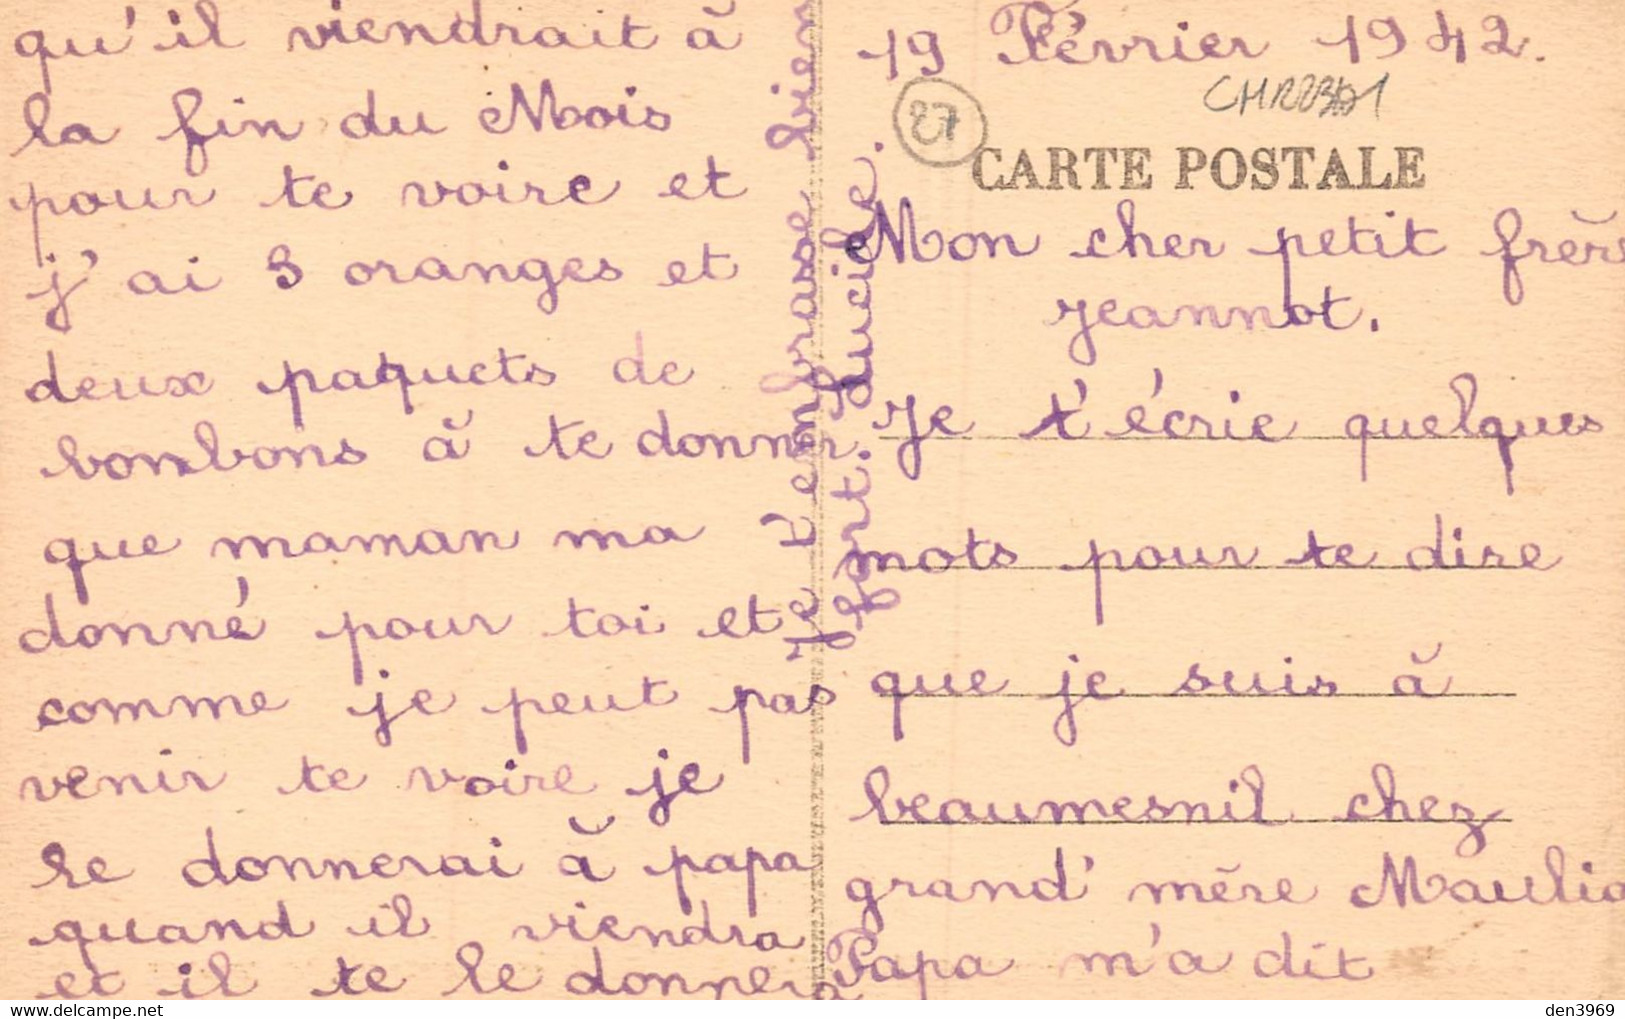 19 Février 1942.
27
CARTE POSTALE
Mon cher petit frère
Jeannot.
Je t'écrie quelques
mots pour te dire
que je suis à
beaumesnil chez
grand' mère
Papa m'a dit
qu'il viendrait à
la fin du Mois
pour te voire et
j'ai 3 oranges et
deux paquets de
bonbons à te donner.
que maman ma
donné pour toi et
comme je peut pas
venir te voire je
le donnerai à papa
quand il viendra
et il te le donnera
Je t'embrasse bien
fort. Lucile.
den3969